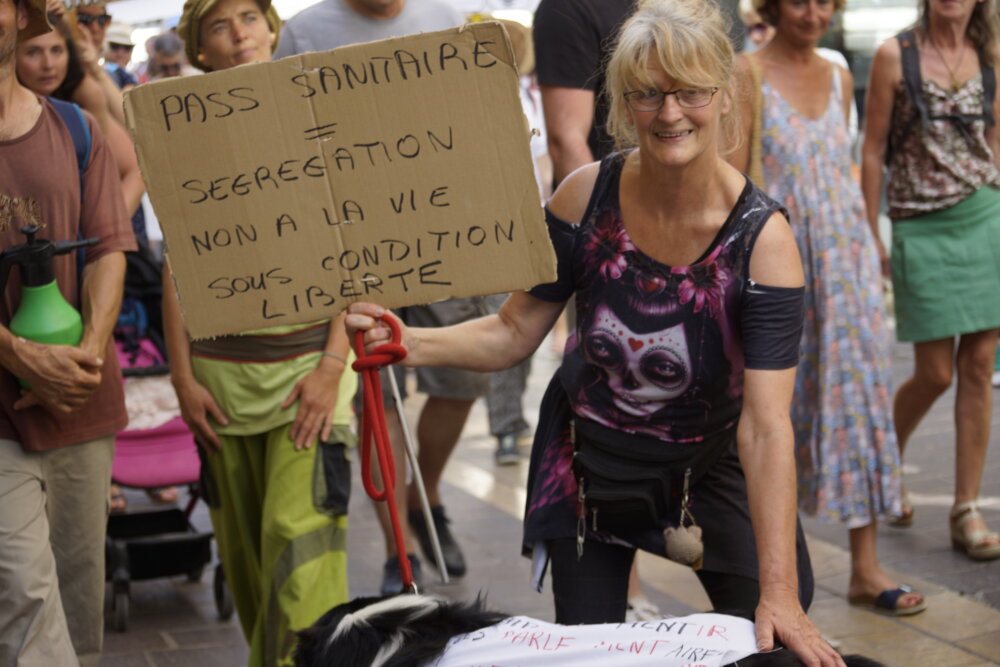 PASS SANITAIRE
=
SEGREGATION
NON A LA VIE
SOUS CONDITION
LIBERTE
MENTIR
PARLE MENT AIRE